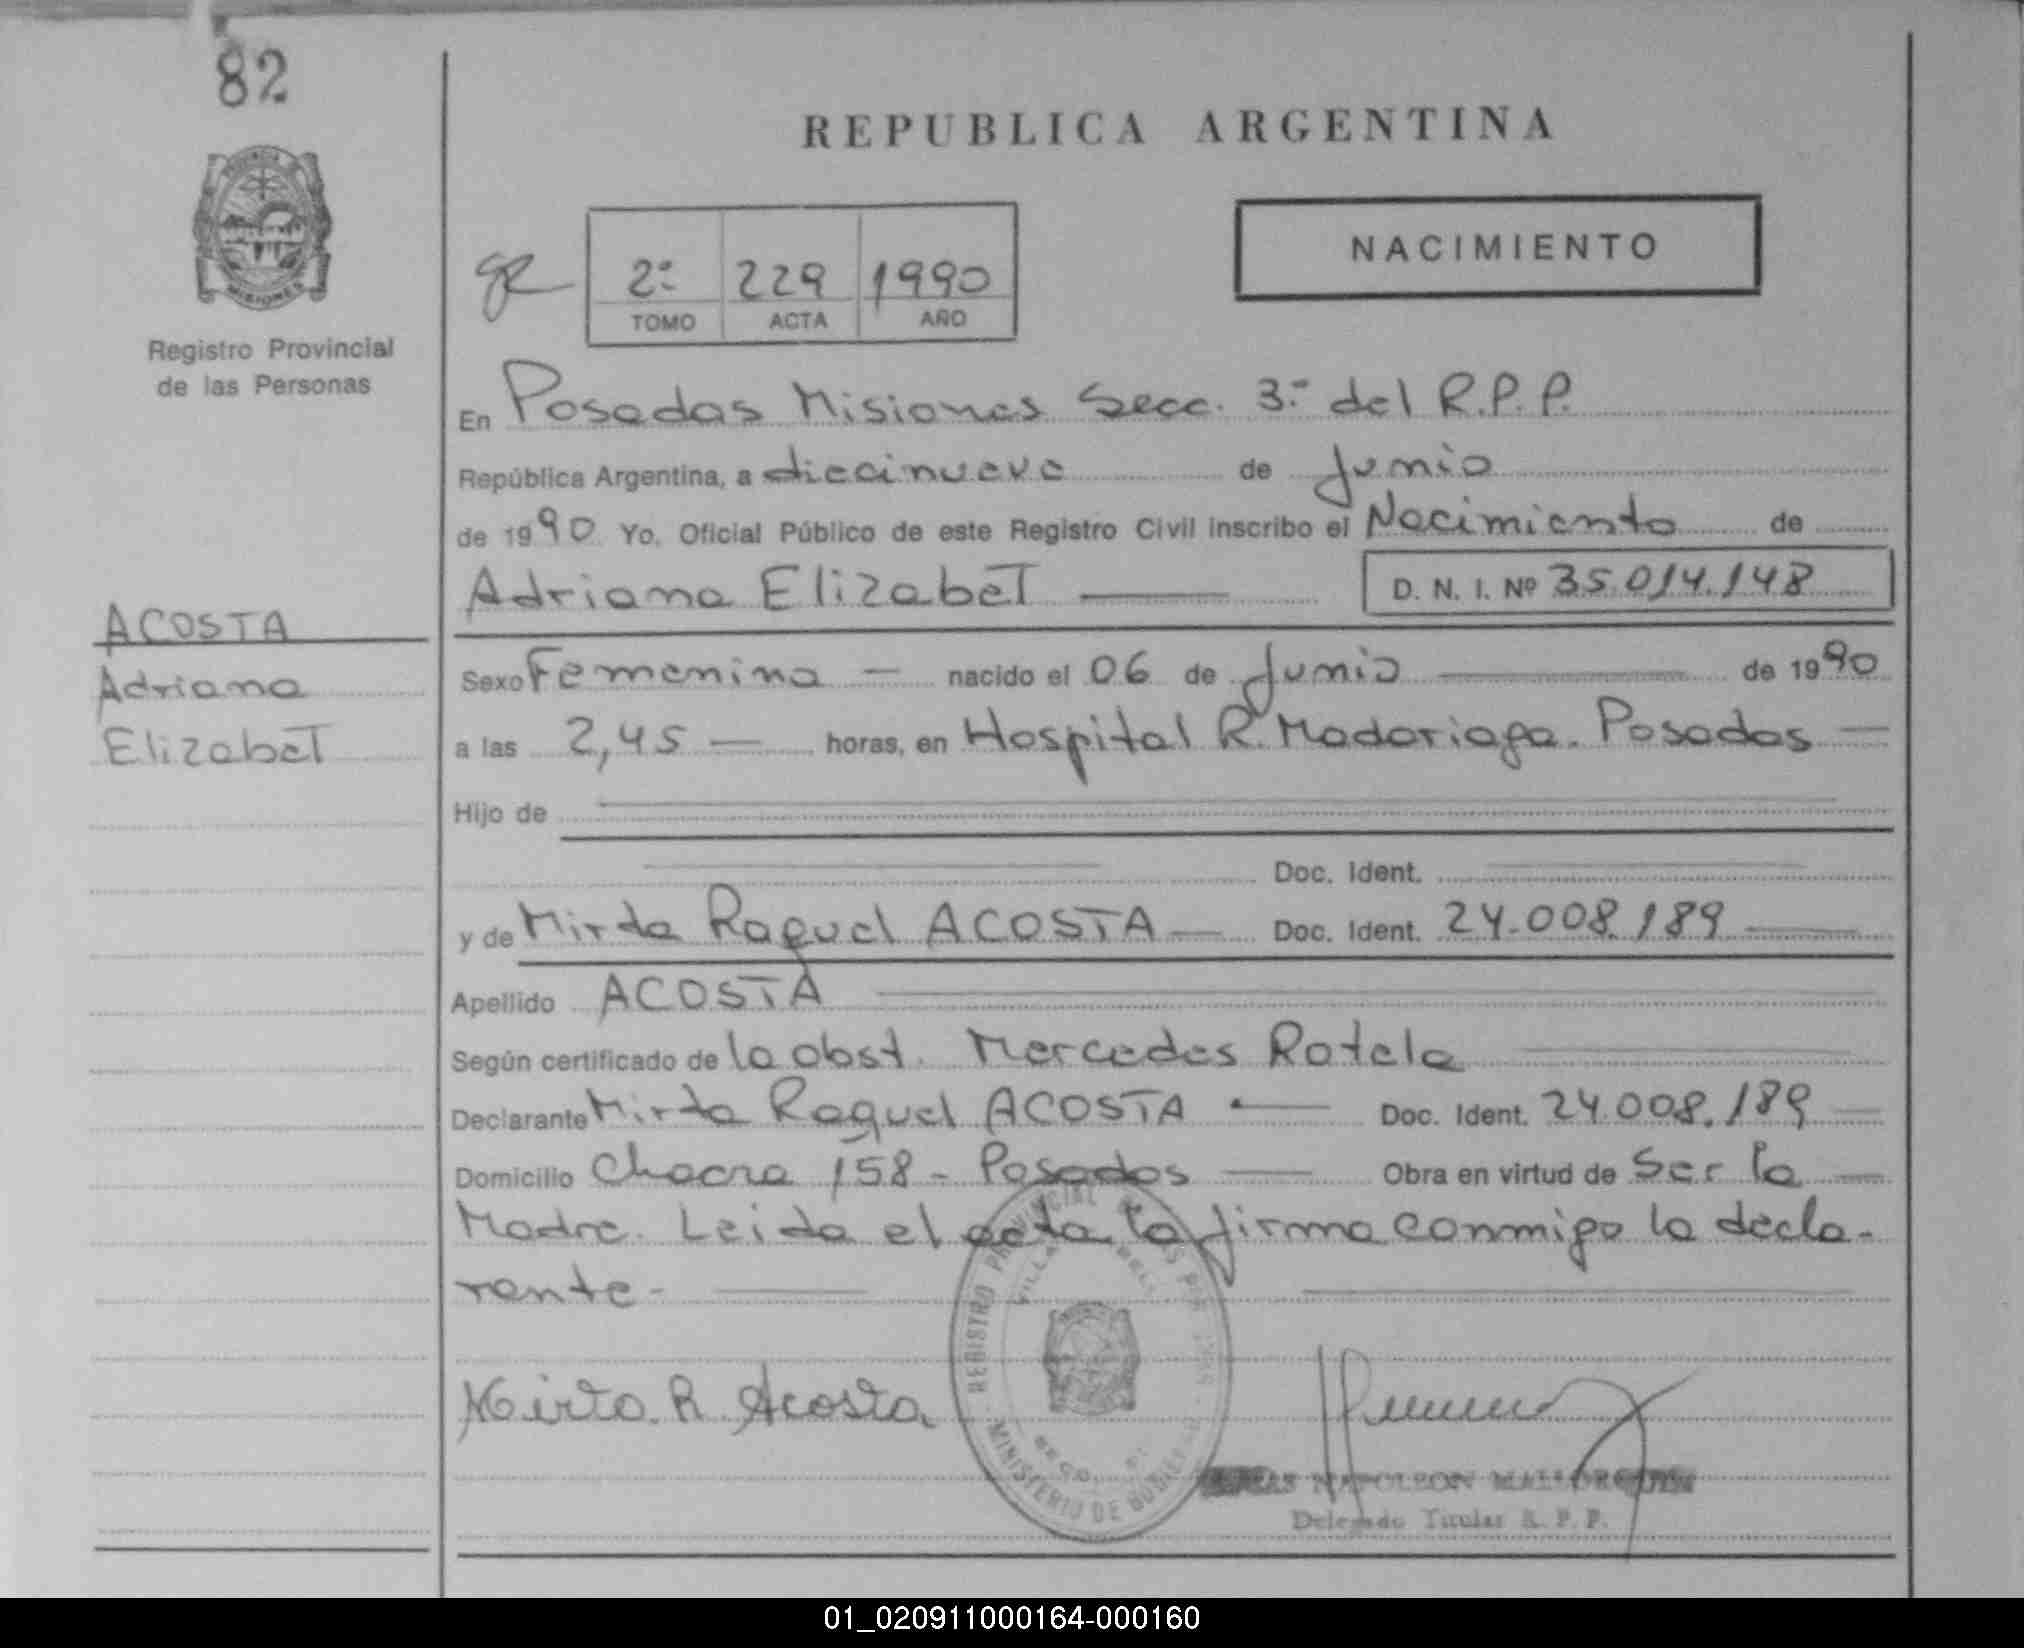 82
REPUBLICA ARGENTINA
NACIMIENTO
2º 229 1990
TOMO ACTA AÑO
MISIONES
Registro Provincial
de las Personas
En Posadas Misiones Secc. 3º del R.P.P.
República Argentina, a diecinueve de Junio
de 1990 Yo, Oficial Público de este Registro Civil inscribo el Nacimiento de
Adriana Elizabet D. N. I. Nº 35.014.148
ACOSTA
Adriana
Elizabet
Sexo Femenino nacido el 06 de Junio de 1990
a las 2,45 horas, en Hospital R. Madariaga. Posadas
Hijo de
Doc. Ident.
y de Mirta Raquel ACOSTA Doc. Ident. 24.008.189
Apellido ACOSTA
Según certificado de la obst. Mercedes Rotela
Declarante Mirta Raquel ACOSTA Doc. Ident. 24.008.189
Domicilio Chacra 158 - Posadas Obra en virtud de Ser la
Madre. Leida el acta la firma conmigo la decla-
rante-
Mirta R. Acosta
REGISTRO PROVINCIAL
MINISTERIO DE
NAPOLEON
Delegado Titular R. P. P.
01_020911000164-000160